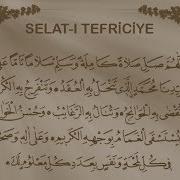 SELAT-I TEFRİCİYE
اَللّٰهُمَّ صَلِّ صَلَاةً كَامِلَةً وَسَلِّمْ سَلَامًا تَامًّا عَلٰى
سَيِّدِنَا مُحَمَّدٍ الَّذِي تَنْحَلُّ بِهِ الْعُقَدُ وَتَنْفَرِجُ بِهِ الْكُرَبُ
وَتُقْضٰى بِهِ الْحَوَائِجُ وَتُنَالُ بِهِ الرَّغَائِبُ وَحُسْنُ الْخَوَاتِمِ
وَيُسْتَسْقَى الْغَمَامُ بِوَجْهِهِ الْكَرِيمِ وَعَلٰى اٰلِهِ وَصَحْبِهِ
فِي كُلِّ لَمْحَةٍ وَنَفَسٍ بِعَدَدِ كُلِّ مَعْلُومٍ لَكَ